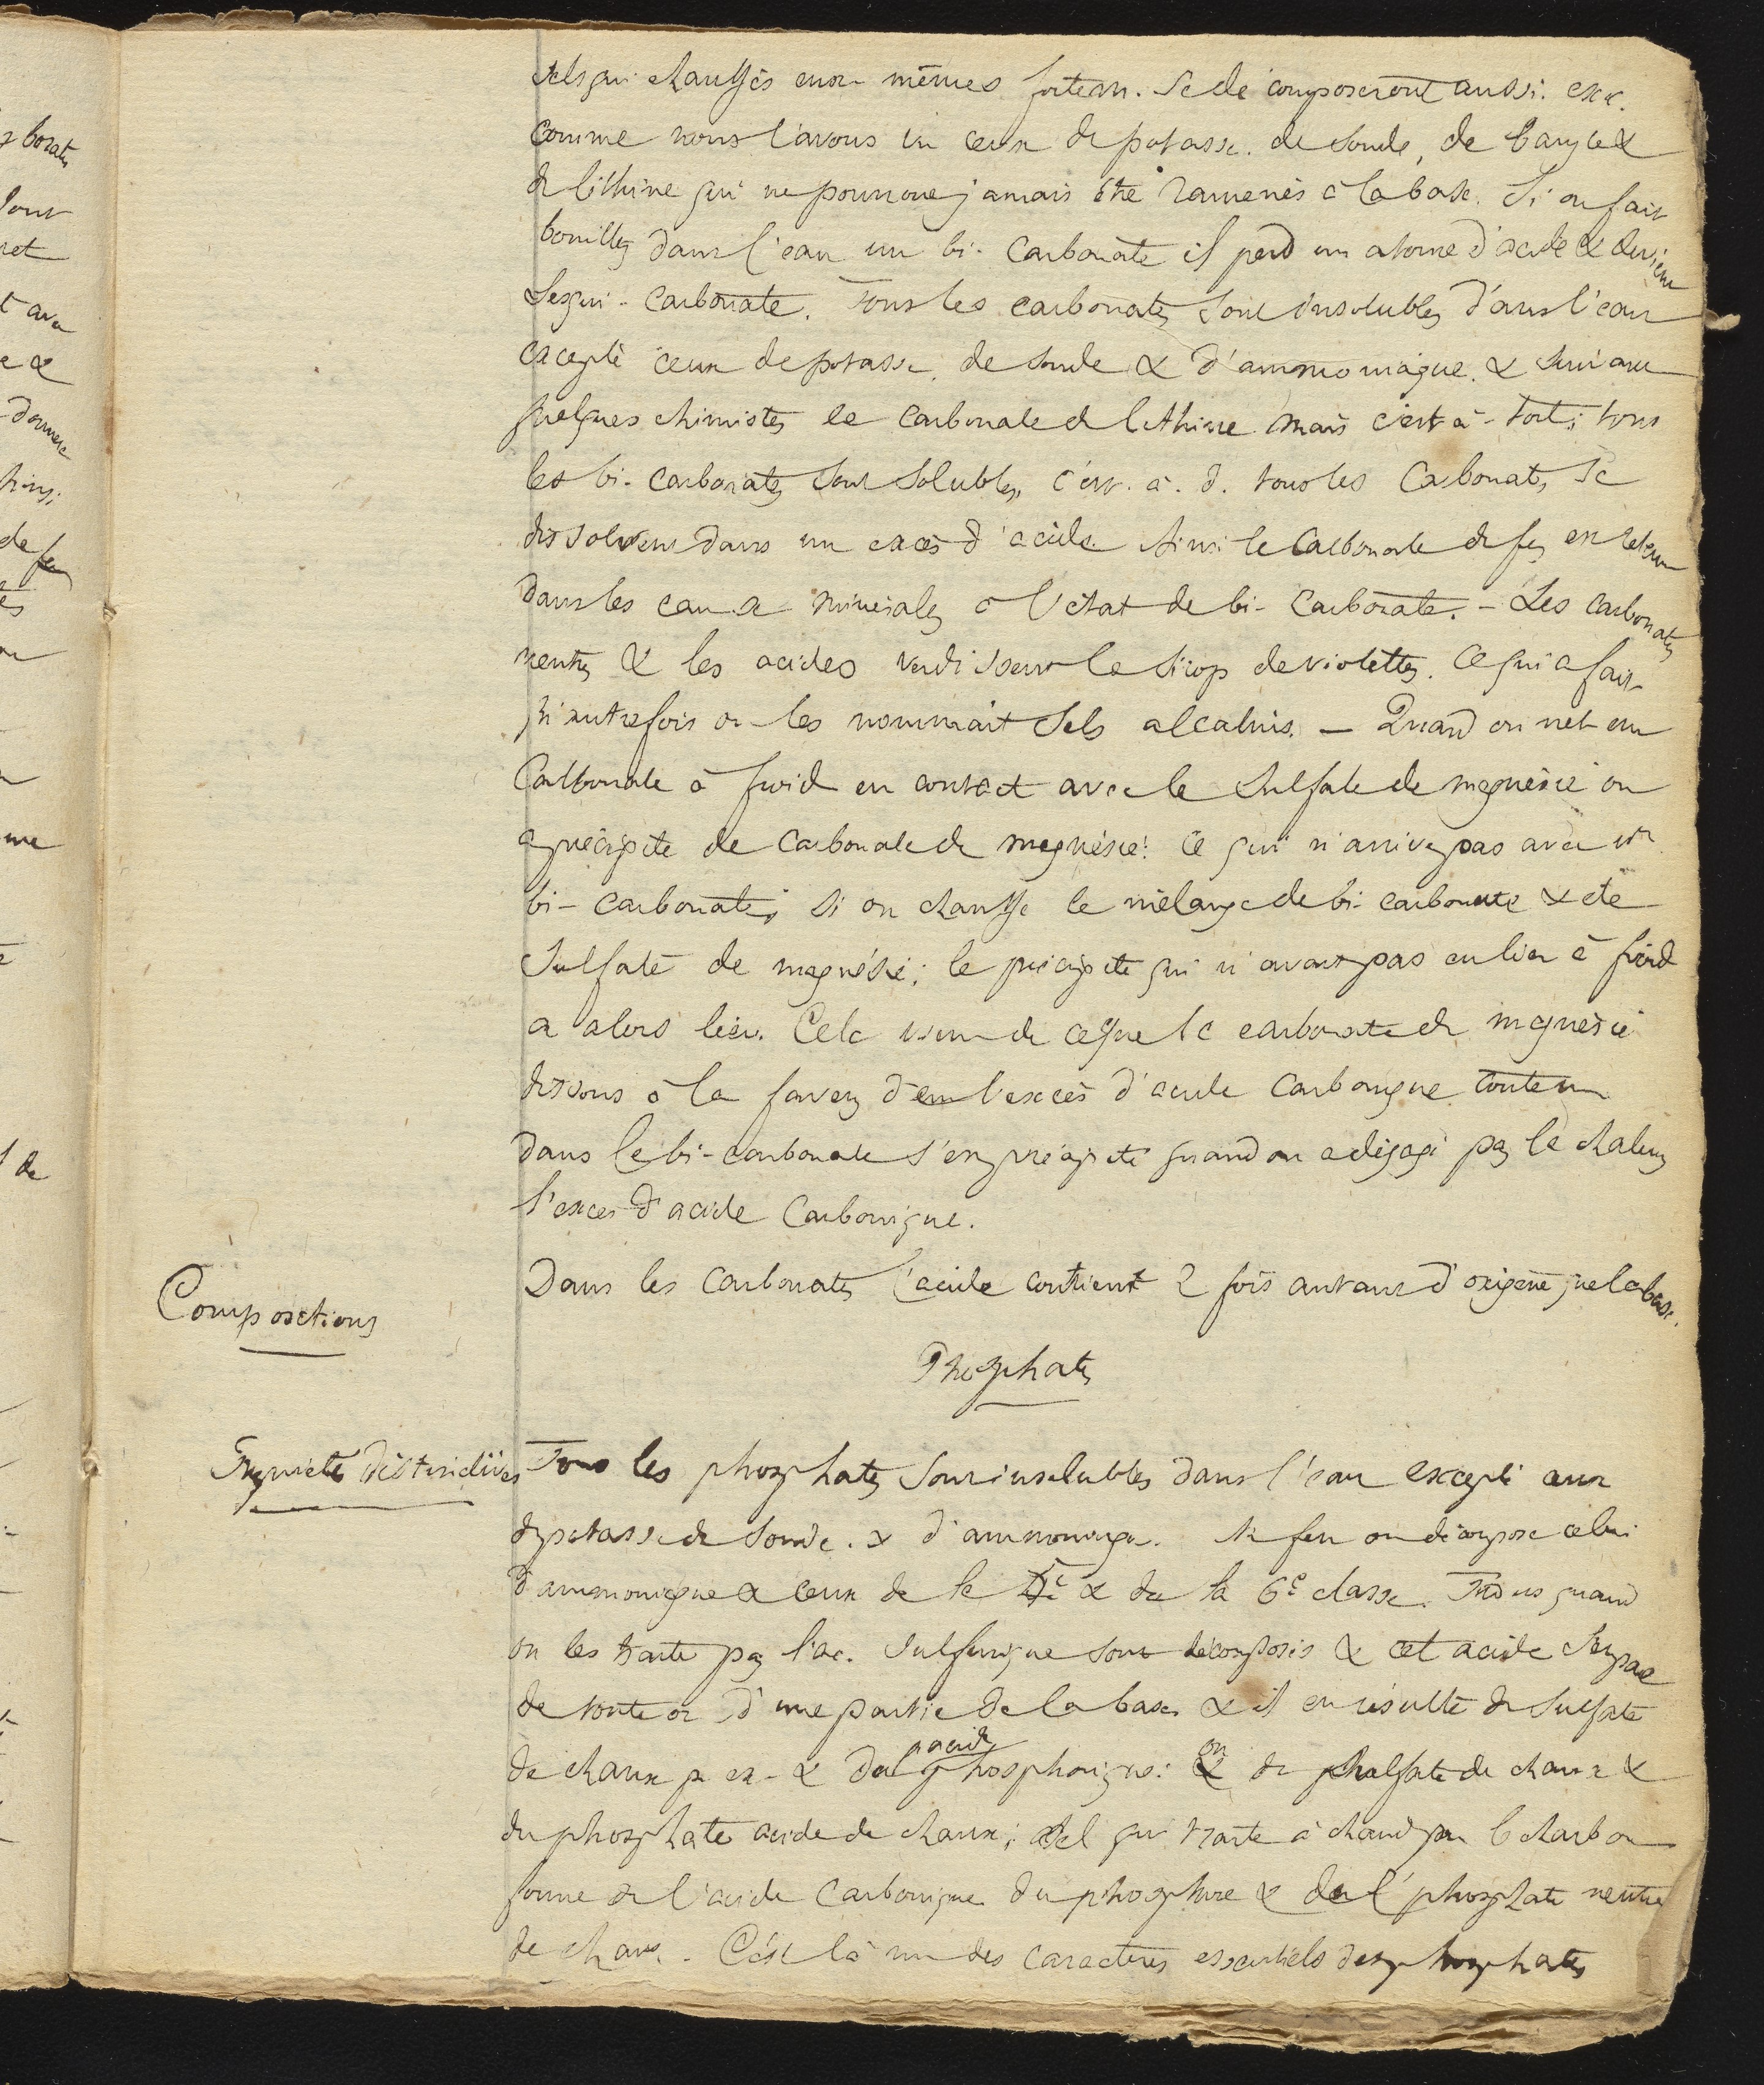 sels qui chauffés eux-mêmes fortem. se décomposeront aussi. exc.
comme nous l'avons vu ceux de potasse. de soude, de baryte &
de lithine qui ne pourront jamais être ramenés à la base. Si on fait
bouillir dans l'eau un bi-carbonate il perd un atome d'acide & devient
sesqui-carbonate. Tous les carbonates sont insolubles dans l'eau
excepté ceux de potasse, de soude & d'ammoniaque. & suivant
quelques chimistes le carbonate de lithine mais c'est à-tort; tous
les bi-carbonates sont solubles, c'est. à. d. tous les carbonates se
dissolvent dans un excès d'acide. Ainsi le carbonate de fer est retenu
dans les eaux minérales à l'état de bi-carbonate. - Les carbonates
neutres & les acides verdissent le sirop de violettes. Ce qui a fait
qu'autrefois on les nommait sels alcalins. - Quand on met un
carbonate à froid en contact avec le sulfate de magnésie on
a précipité de carbonate de magnésie: ce qui n'arrive pas avec un
bi-carbonate; si on chauffe le mélange de bi-carbonate & de
sulfate de magnésie; le précipité qui n'avait pas eu lieu à froid
a alors lieu. Cela vient de ce que le carbonate de magnésie
dissous à la faveur d'eul'excès d'acide carbonique contenu
dans le bi-carbonate s'en précipite quand on a dégagé par la chaleur
l'excès d'acide carbonique.
Compositions
Dans les carbonates l'acide contient 2 fois autant d'oxigène que la base.
Phosphates
Propriétés distinctives
Tous les phosphates sont insolubles dans l'eau excepté ceux
de potasse de soude. & d'ammoniaque. Au feu on décompose celui
d'ammoniaque & ceux de la & de la 6e classe. Tous quand
on les traite par l'ac. sulfurique sont décomposés & cet acide s'empare
de toute ou d'une partie de la base & il en résulte du sulfate
de chaux p. ex- & de l'acide phosphorique: ou du sulfate de chaux &
du phosphate acide de chaux; sel qui traité à chaud par le charbon
forme de l'acide carbonique du phosphore & du phosphate neutre
de chaux. C'est là un des caractères essentiels des phosphates